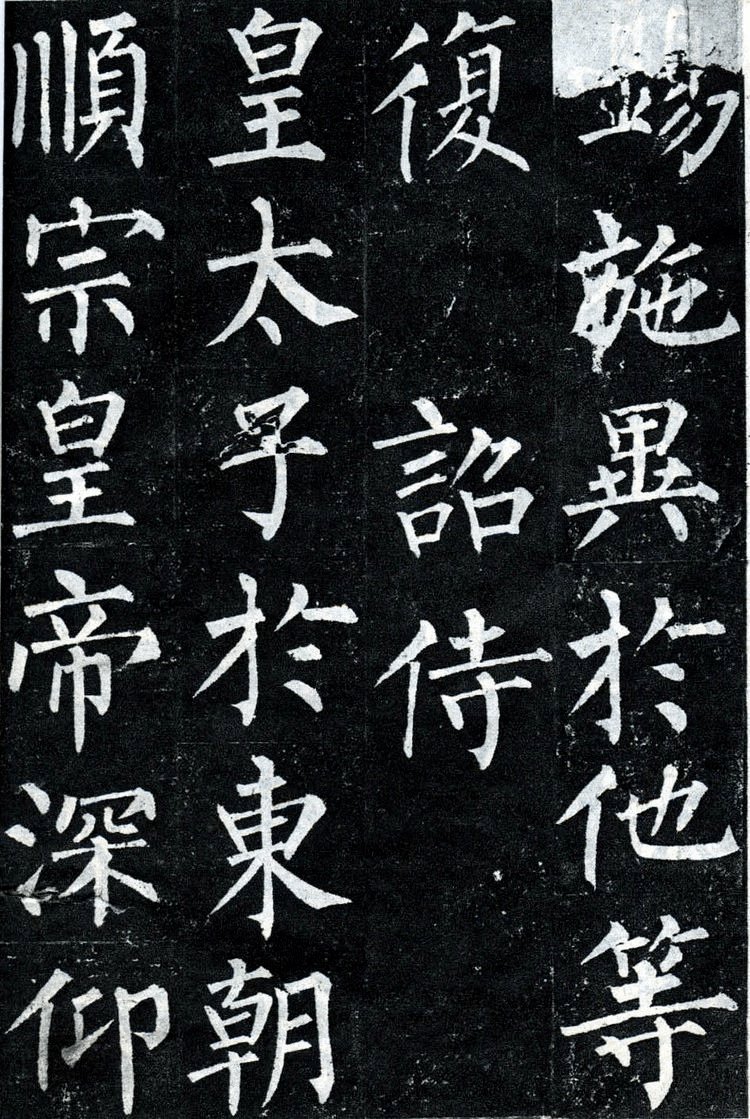 賜施異於他等
復 詔侍
皇太子於東朝
順宗皇帝深仰